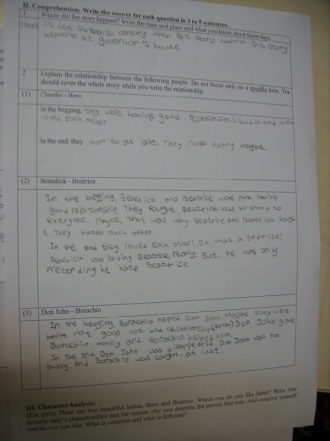 II. Comprehension: Write the answer for each question in 3 to 5 sentences.
1 Where did the story happen? Write the time and place and what you know about those
It was sixteenth century when this story happen. This story
happens at governor's house.
2 Explain the relationship between the following people. Do not focus only on a specific You
should cover the whole story while you write the relationship.
(1) Claudio - Hero
in the begging, they were having good relasionship. Claudio and
loved each other.
in the end they married at last. They lived happy
(2) Benedick - Beatrice
In the begging, Benedick and Beatrice was not having
good relasionship. They fought. Beatrice was so sharp to
everyone. Maybe, that was why Beatrice and Benedick
t. They hated each other.
In the end they loved each other! It was a
Benedick was loving Beatrice, really. But, he was only
pretending he hate Beatrice.
(3) Don John - Borachio
In the begging, Borachio helped Don John. Maybe they were
not good, not bad relasionship. Don John gave
Borachio money and Borachio helped him.
In the end, Don John was disappeared. Don John was run
away and Borachio was caught at last.
III. Character Analysis:
(For girls) There are two beautiful ladies, Hero and Beatrice. Which one do you like better? Write your
favorite lady's characteristics and the reason why you describe the person that way. And compare yourself
and the one you like. What is common and what is different?